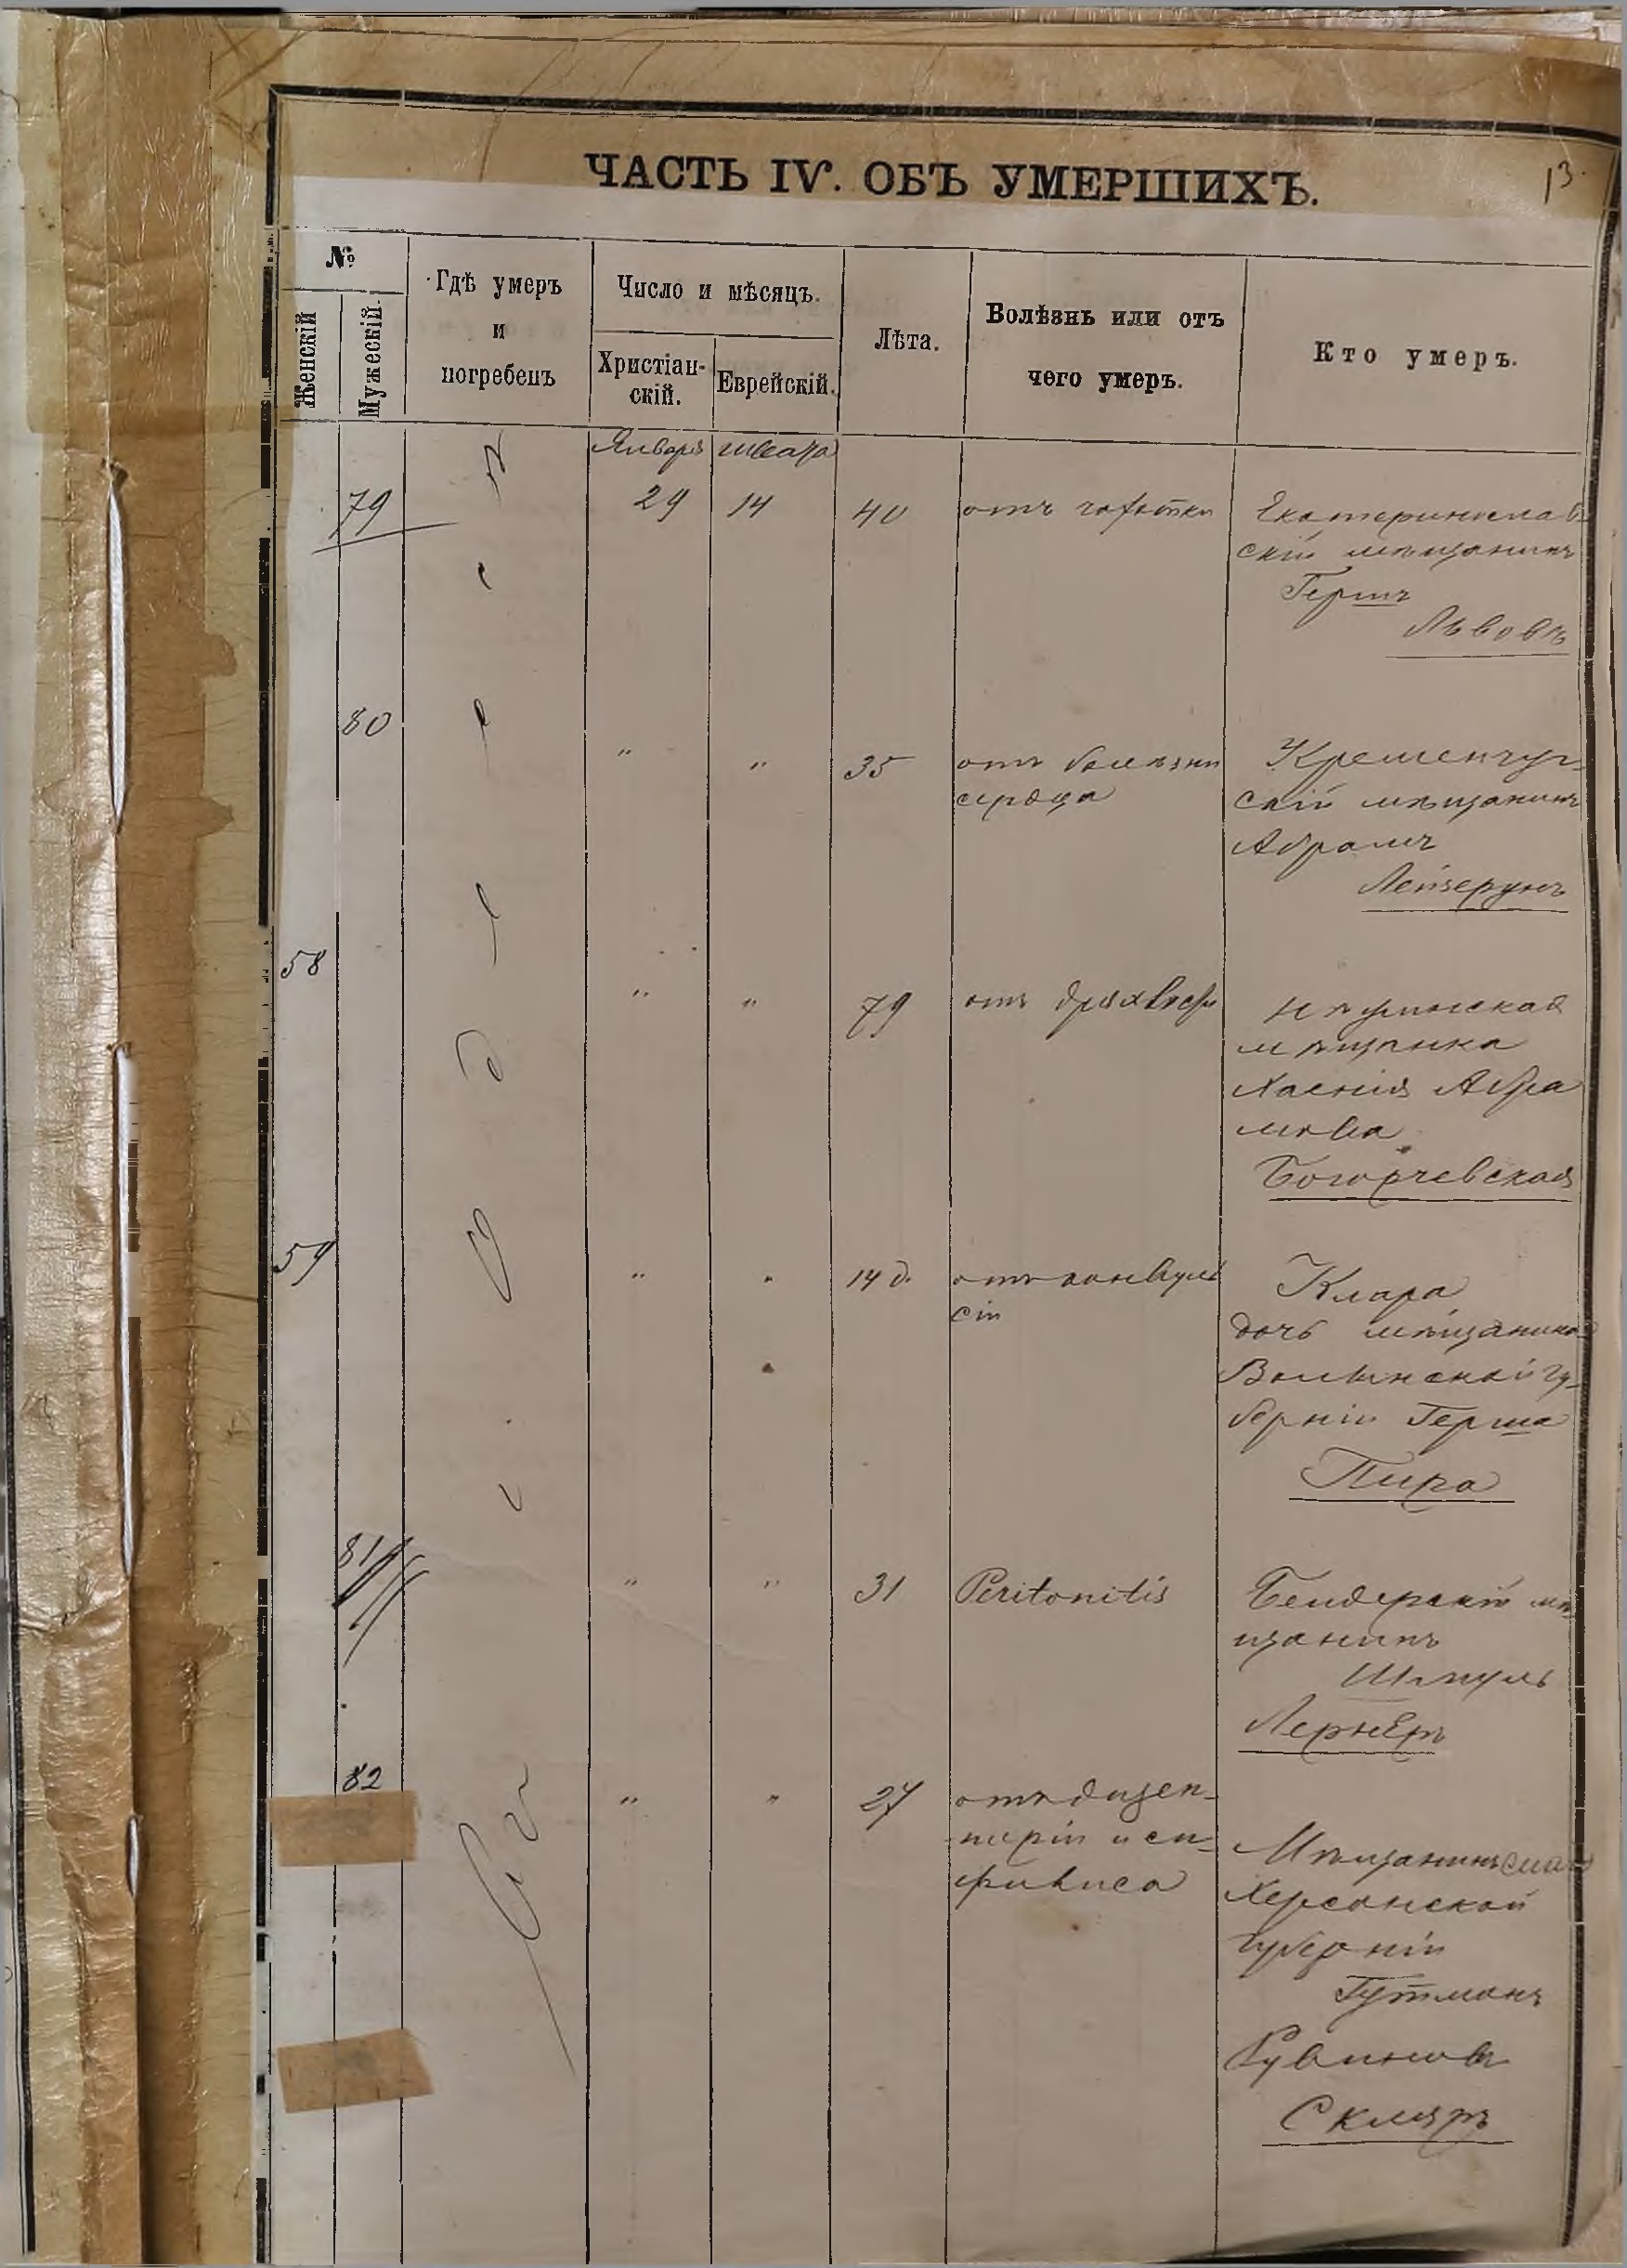 ЧАСТЬ IV. ОБЪ УМЕРШИХЪ.
13.
№
Женскій
Мужескій.
Гдѣ умеръ
и
погребенъ
Число и мѣсяцъ.
Христіан-
скій.
Еврейскій.
Лѣта.
Болѣзнь или отъ
чего умеръ.
Кто умеръ.
Въ г. Одессѣ
Января
79
29
14
40
отъ чахотки
Екатеринослав
скій мѣщанинъ
Гершъ
Львовъ
80
"
"
35
отъ болѣзни
сердца
Кременчуг-
скій мѣщанинъ
Абрамъ
Лейзерунъ
58
"
"
79
отъ
мѣщанка
Хасния Абра
мова
Богорчевская
59
"
"
14 д.
отъ конвуль
сіи
Клара
дочь мѣщанина
Волынской гу-
берніи Герша
Пира
81
"
"
31
Peritonitis
Бендерскій мѣ
щанинъ
Шмуль
Лернеръ
82
"
"
27
отъ дизен-
теріи и си-
филиса
Мѣщанинъ
Херсонской
губерніи
Гутманъ
Рувиновъ
Скляръ